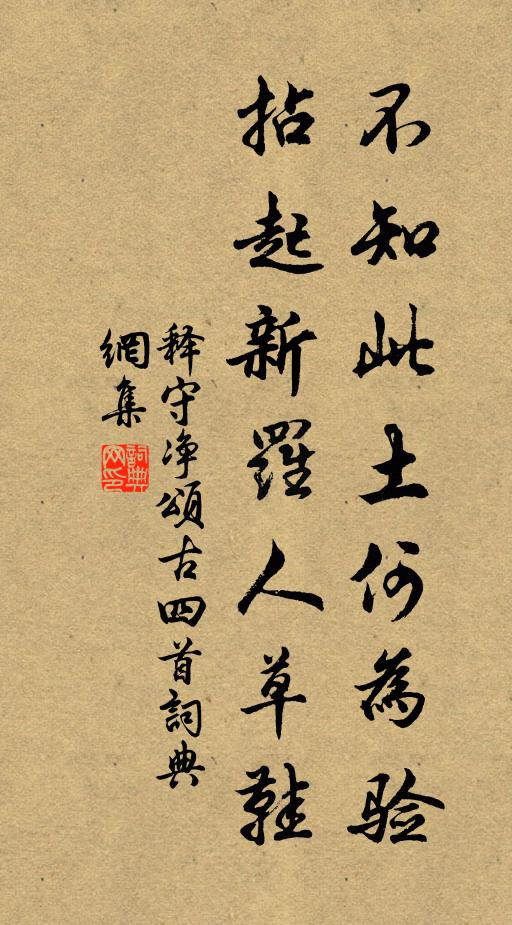 不知此土何為验
拈起新羅人草鞋
释守净頌古四首詞典
網集
詞典
网印